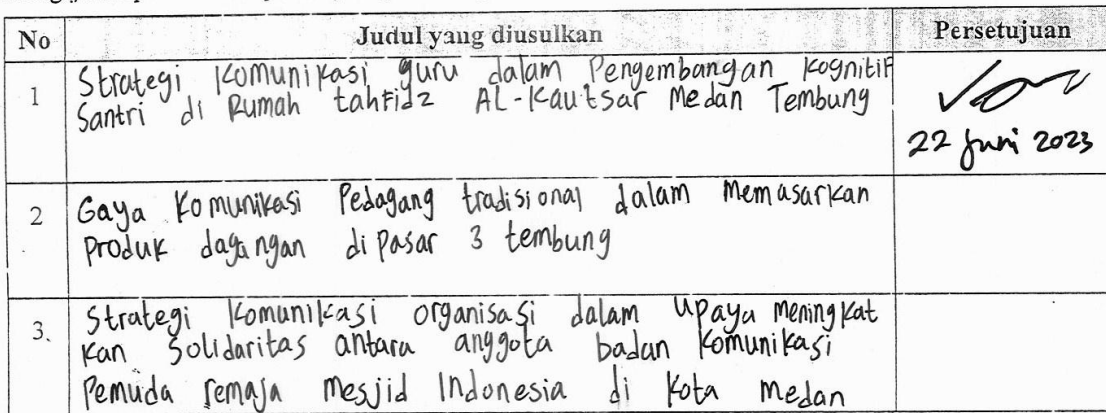 No Judul yang diusulkan Persetujuan
1 Strategi Komunikasi guru dalam Pengembangan Kognitif
Santri di Rumah tahfidz AL-Kautsar Medan Tembung
22 Juni 2023
2 Gaya Komunikasi Pedagang tradisional dalam Memasarkan
Produk dagangan di Pasar 3 tembung
3. Strategi Komunikasi organisasi dalam upaya mening kat
kan Solidaritas antara anggota badan Komunikasi
Pemuda remaja mesjid Indonesia di Kota medan